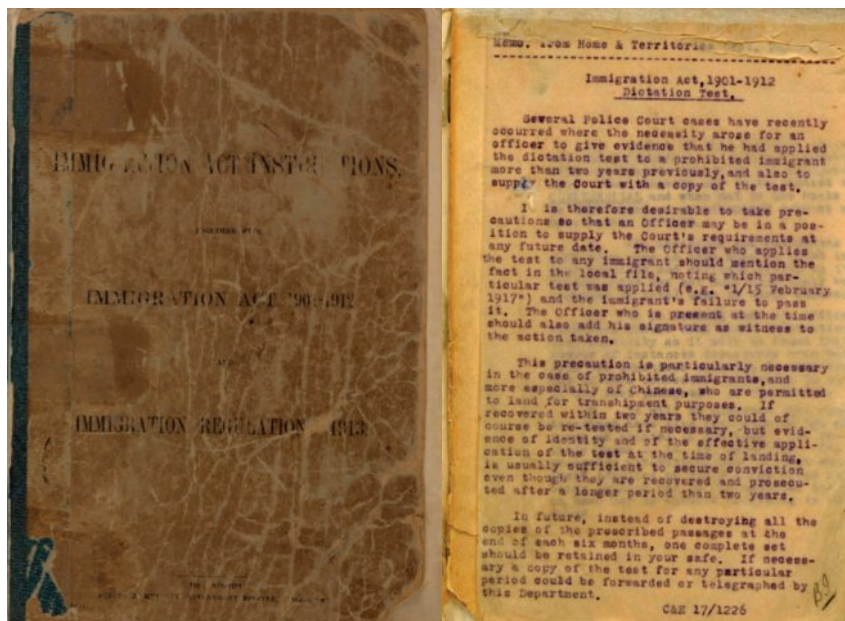 IMMIGRATION ACT INSTRUCTIONS,
TOGETHER WITH
IMMIGRATION ACT 1901-1912
AND
IMMIGRATION REGULATION 1913
Memo. from Home & Territories
Immigration Act, 1901-1912
Dictation Test.
Several Police Court cases have recently
occurred where the necessity arose for an
officer to give evidence that he had applied
the dictation test to a prohibited immigrant
more than two years previously, and also to
supply the Court with a copy of the test.
It is therefore desirable to take pre-
cautions so that an Officer may be in a pos-
ition to supply the Court's requirements at
any future date. The Officer who applies
the test to any immigrant should mention the
fact in the local file, noting which par-
ticular test was applied (e.g. "1/15 February
1917") and the immigrant's failure to pass
it. The Officer who is present at the time
should also add his signature as witness to
the action taken.
This precaution is particularly necessary
in the case of prohibited immigrants, and
more especially of Chinese, who are permitted
to land for transhipment purposes. If
recovered within two years they could of
course be re-tested if necessary, but evid-
ence of identity and of the effective appli-
cation of the test at the time of landing,
is usually sufficient to secure conviction
even though they are recovered and prosecu-
ted after a longer period than two years.
In future, instead of destroying all the
copies of the prescribed passages at the
end of each six months, one complete set
should be retained in your safe. If necess-
ary a copy of the test for any particular
period could be forwarded or telegraphed by
this Department.
C&E 17/1226